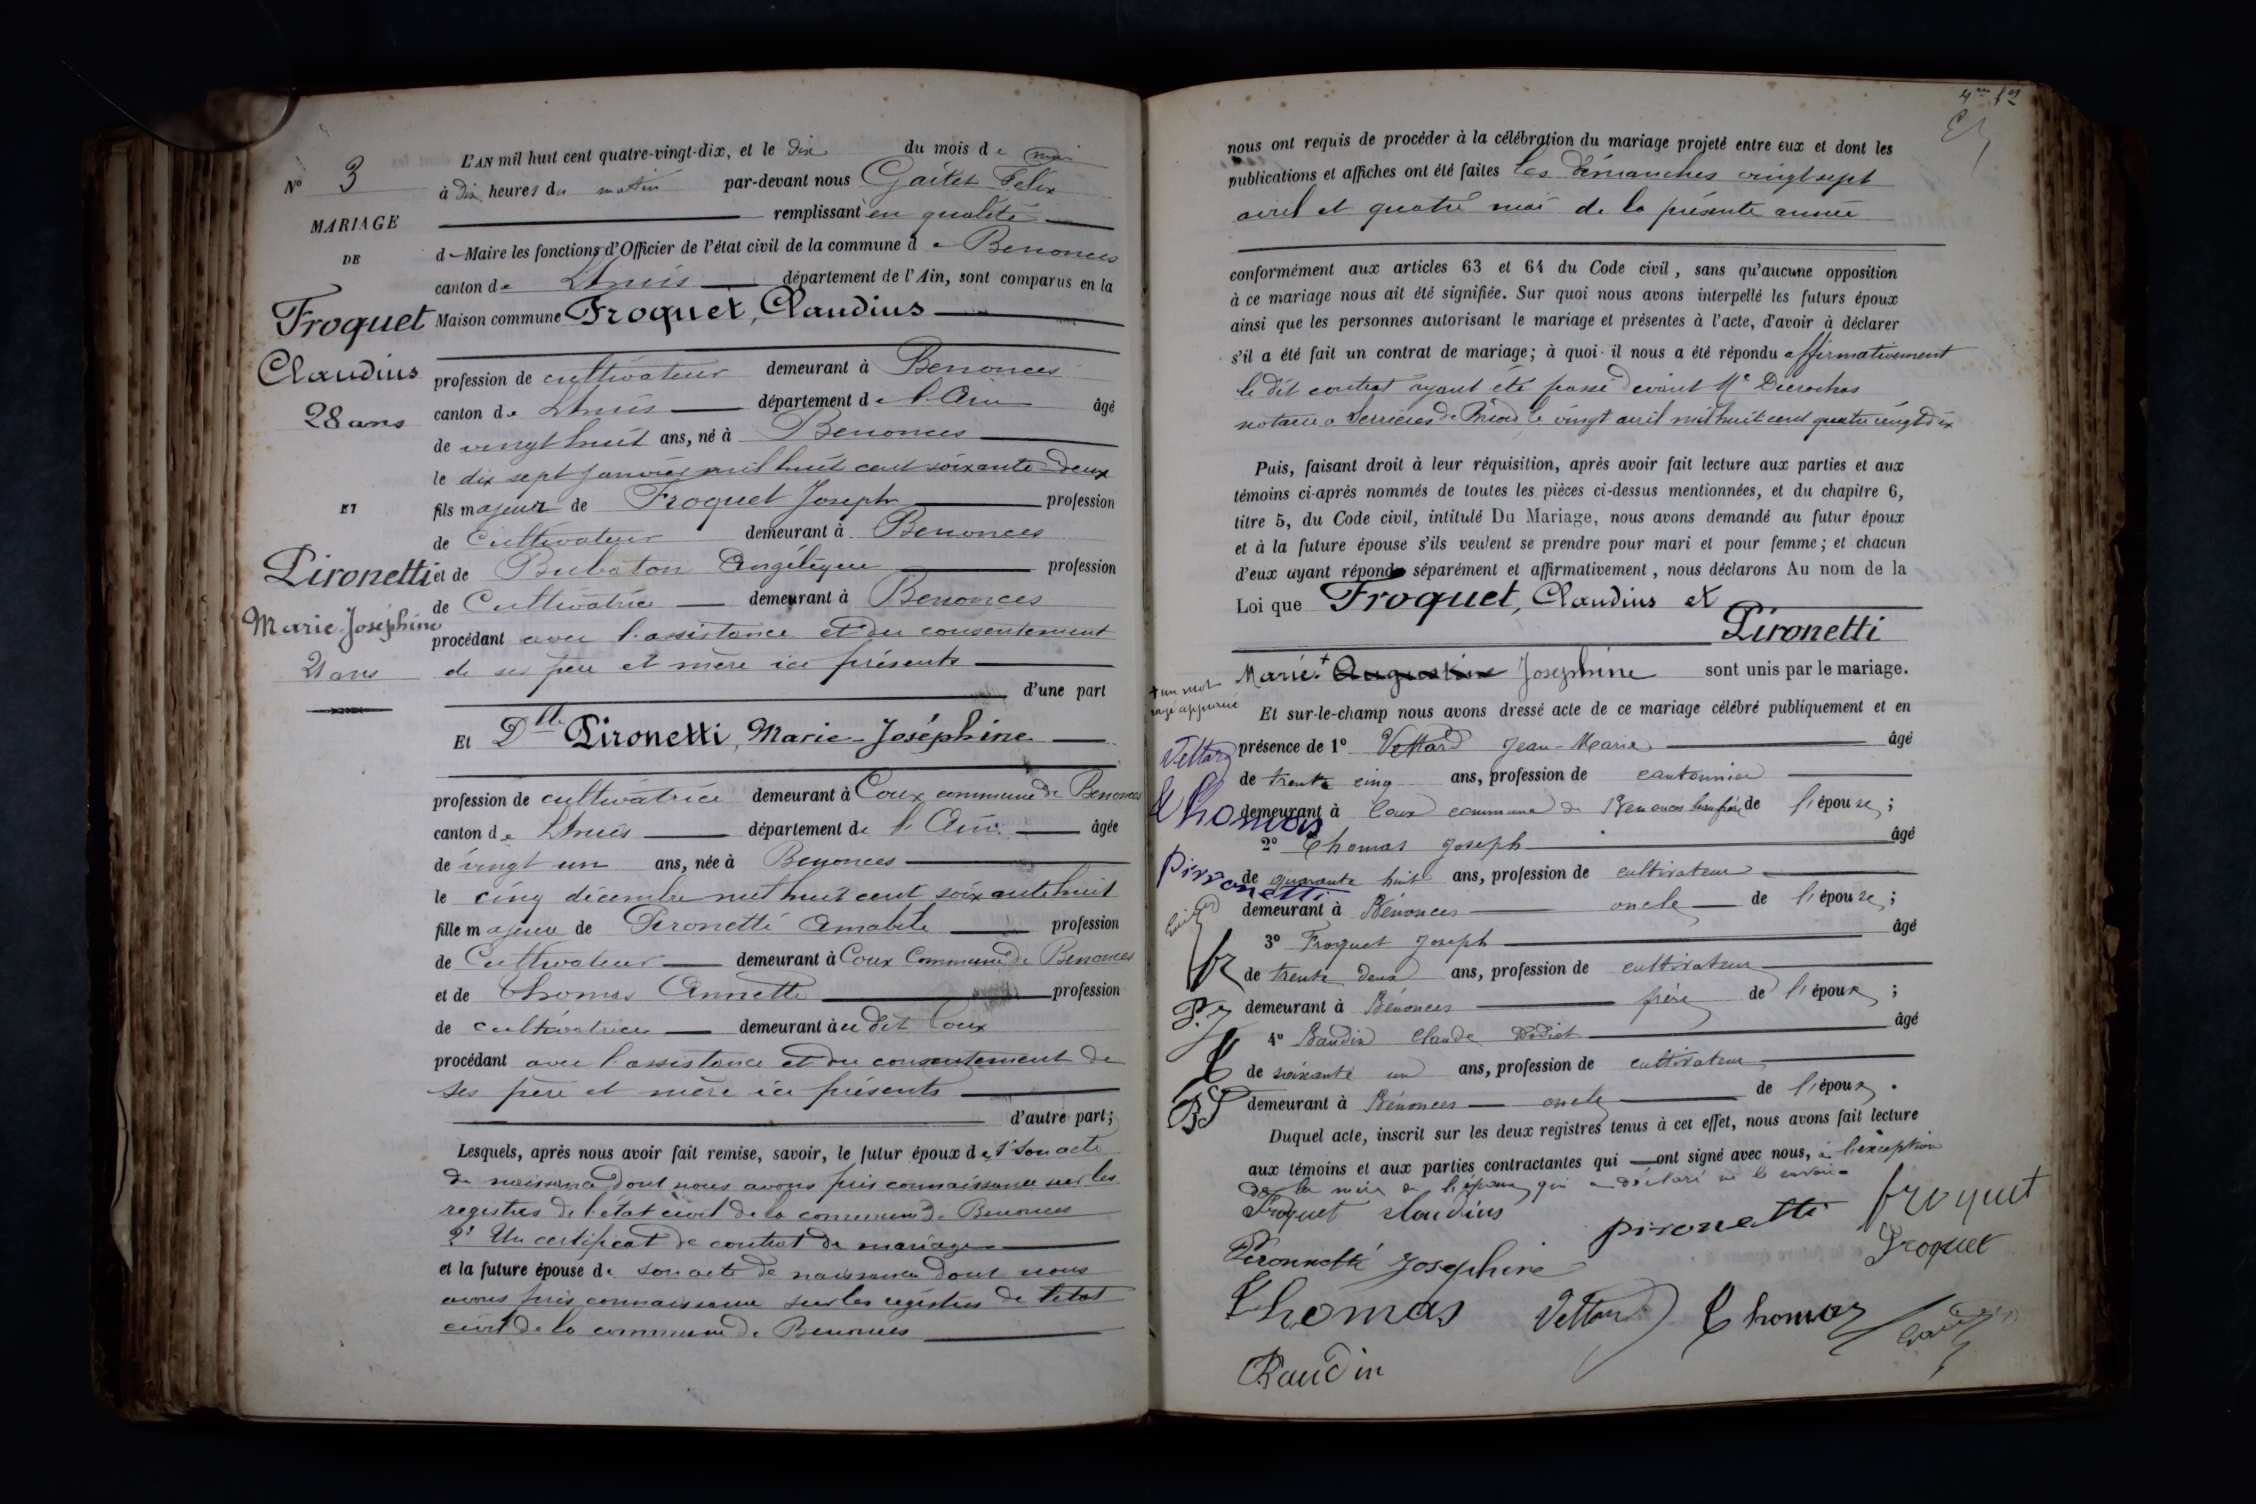 N° 3
MARIAGE
DE
Froquet
Claudius
28 ans
ET
Pironetti
Marie-Joséphine
21 ans
L'AN mil huit cent quatre-vingt-dix, et le dix du mois de mai
à dix heures du matin par-devant nous Gaitet Félix
remplissant en qualité
de Maire les fonctions d'Officier de l'état civil de la commune de Benonces
canton de Lhuis département de l'Ain, sont comparus en la
Maison commune Froquet, Claudius
profession de cultivateur demeurant à Benonces
canton de Lhuis département de l'Ain âgé
de vingt huit ans, né à Benonces
le dix sept janvier mil huit cent soixante deux
fils majeur de Froquet Joseph profession
de Cultivateur demeurant à Benonces
et de Bubaton Angélique profession
de Cultivatrice demeurant à Benonces
procédant avec l'assistance et du consentement
de ses père et mère ici présents
d'une part
Et Dlle Pironetti, Marie-Joséphine
profession de cultivatrice demeurant à Coux commune de Benonces
canton de Lhuis département de l'Ain âgée
de vingt un ans, née à Benonces
le cinq décembre mil huit cent soixante huit
fille majeure de Pironetti Amabile profession
de Cultivateur demeurant à Coux Commune de Benonces
et de Thomas Annette profession
de cultivatrice demeurant à u dit Coux
procédant avec l'assistance et du consentement de
ses père et mère ici présents
d'autre part;
Lesquels, après nous avoir fait remise, savoir, le futur époux de 1° son acte
de naissance dont nous avons pris connaissance sur les
registres de l'état civil de la commune de Benonces
2° Un certificat de contrat de mariage
et la future épouse de son acte de naissance dont nous
avons pris connaissance sur les registres de l'état
civil de la commune de Benonces
nous ont requis de procéder à la célébration du mariage projeté entre eux et dont les
publications et affiches ont été faites les dimanches vingt sept
avril et quatre mai de la présente année
conformément aux articles 63 et 64 du Code civil, sans qu'aucune opposition
à ce mariage nous ait été signifiée. Sur quoi nous avons interpellé les futurs époux
ainsi que les personnes autorisant le mariage et présentes à l'acte, d'avoir à déclarer
s'il a été fait un contrat de mariage; à quoi il nous a été répondu affirmativement
le dit contrat ayant été passé devant Me
notaire à Serrières de Briord le vingt avril mil huit cent quatre vingt dix
Puis, faisant droit à leur réquisition, après avoir fait lecture aux parties et aux
témoins ci-après nommés de toutes les pièces ci-dessus mentionnées, et du chapitre 6,
titre 5, du Code civil, intitulé Du Mariage, nous avons demandé au futur époux
et à la future épouse s'ils veulent se prendre pour mari et pour femme; et chacun
d'eux ayant répondu séparément et affirmativement, nous déclarons Au nom de la
Loi que Froquet, Claudius et
Pironetti
Marie + Augustine Josephine sont unis par le mariage.
+ un mot
rayé approuvé
Et sur-le-champ nous avons dressé acte de ce mariage célébré publiquement et en
présence de 1° Vettard Jean-Marie âgé
de trente cinq ans, profession de cantonnier
demeurant à Coux commune de Benonces beau frère de l'épouse;
2° Thomas Joseph âgé
de quarante huit ans, profession de cultivateur
demeurant à Bénonces oncle de l'épouse;
3° Froquet Joseph âgé
de trente deux ans, profession de cultivateur
demeurant à Bénonces frère de l'époux;
4° Baudin Claude âgé
de soixante un ans, profession de cultivateur
demeurant à Bénonces oncle de l'époux.
Duquel acte, inscrit sur les deux registres tenus à cet effet, nous avons fait lecture
aux témoins et aux parties contractantes qui ont signé avec nous, à l'exception
de la mère de l'époux qui a déclaré ne le savoir
Vettard
Thomas
Pironetti
Froquet Claudius
pironetti
froquet
Pironnetti Josephine
Froquet
Thomas
Vettard
Thomas
Baudin